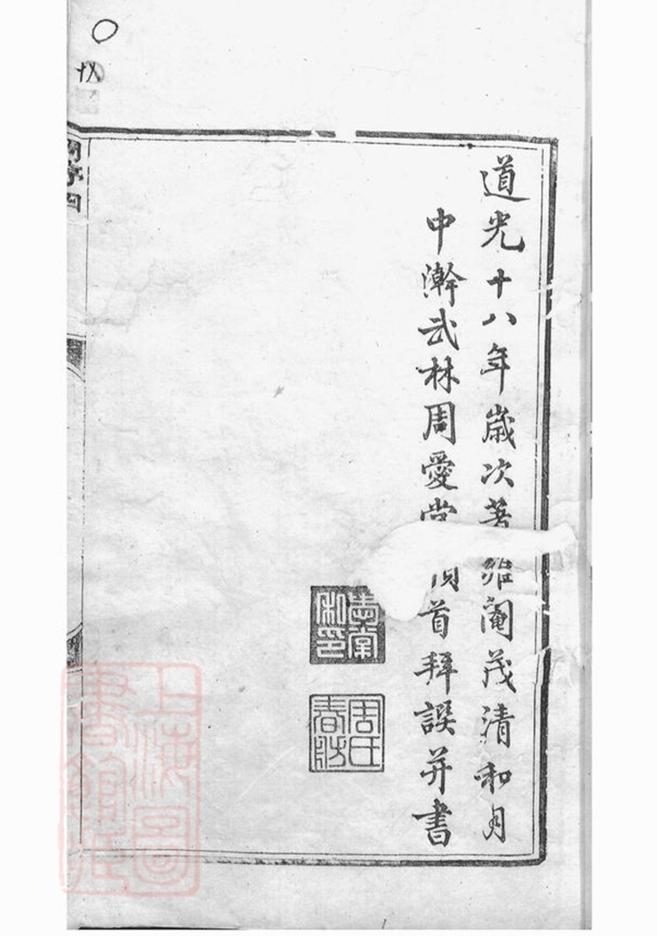 道光十八年歲次著雍閹茂清和月
中澣武林周愛棠頓首拜譔并書
周氏
春舫
上海圖
書館藏